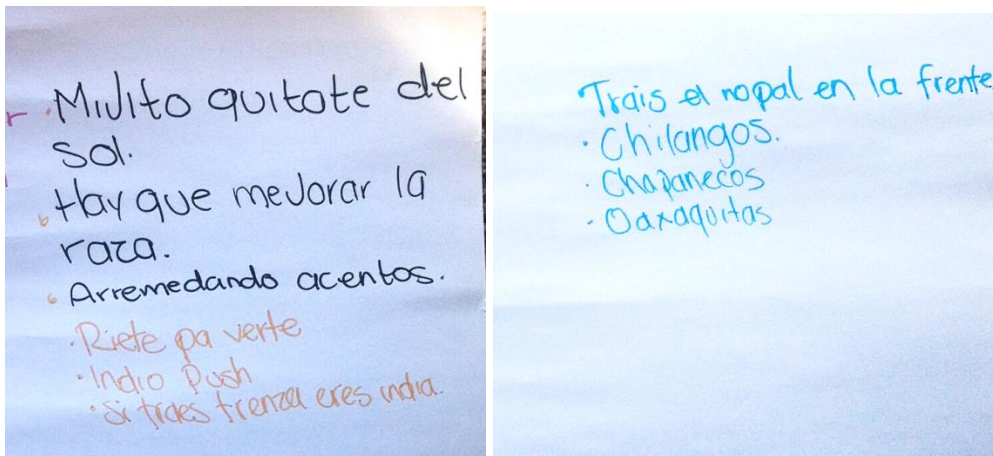 · Mijito quitate del
sol.
· Hay que mejorar la
raza.
· Arremedando acentos.
· Riete pa verte
· Indio Push
· Si traes trenza eres india.
Trais el nopal en la frente
· Chilangos.
· Chapanecos
· Oaxaquitas